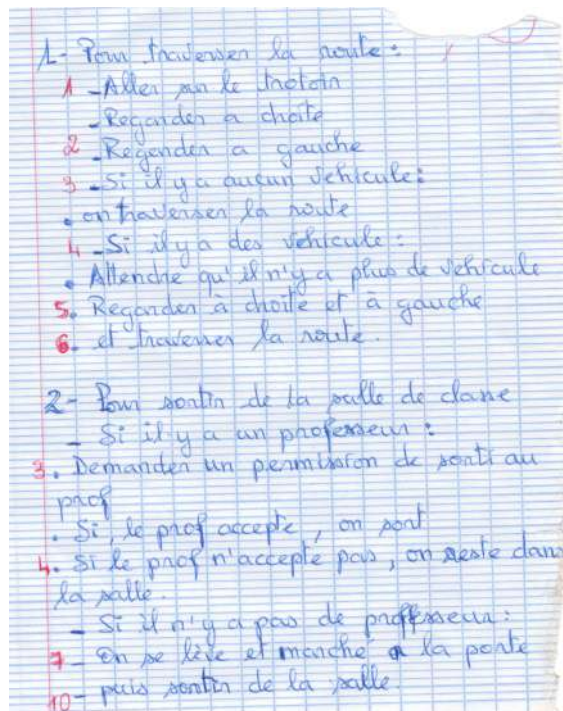 1- Pour traverser la route :
1 - Aller sur le trotoir
- Regarder a droite
2 - Regarder a gauche
3 - Si il y a aucun vehicule :
. on traverser la route
4 - Si il y a des vehicule :
. Attendre qu'il n'y a plus de vehicule
5. Regarder à droite et à gauche
6. et traverser la route.
2- Pour sortir de la salle de classe
- Si il y a un professeur :
3. Demander un permission de sorti au
prof
. Si, le prof accepte, on sort
4. Si le prof n'accepte pas, on reste dans
la salle.
- Si il n'y a pas de professeur :
7 - On se lève et marche a la porte
10 - puis sortir de la salle.